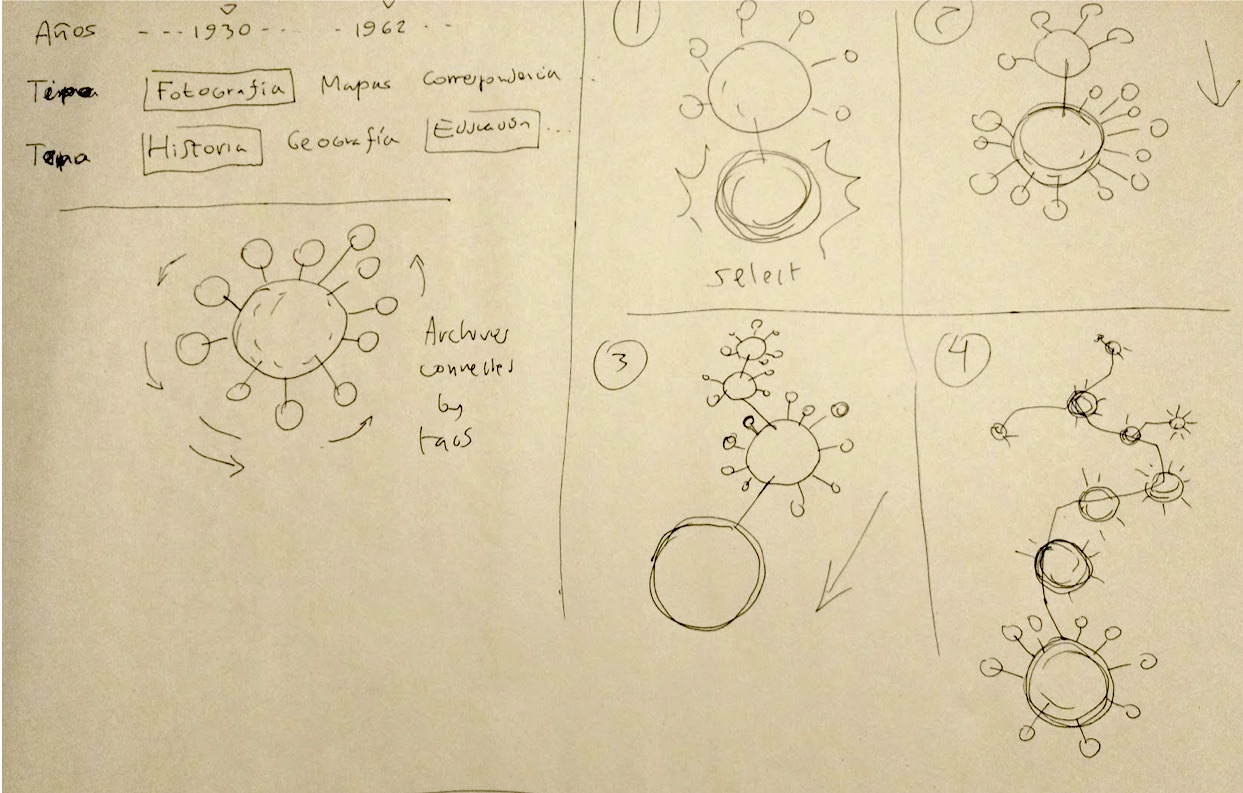 Años - - - 1930 - - - - 1962 - -
Fotografía Mapas Correspondencia ...
Historia Geografía Educación ...
Archives
connected
by
tags
1
select
2
3
4